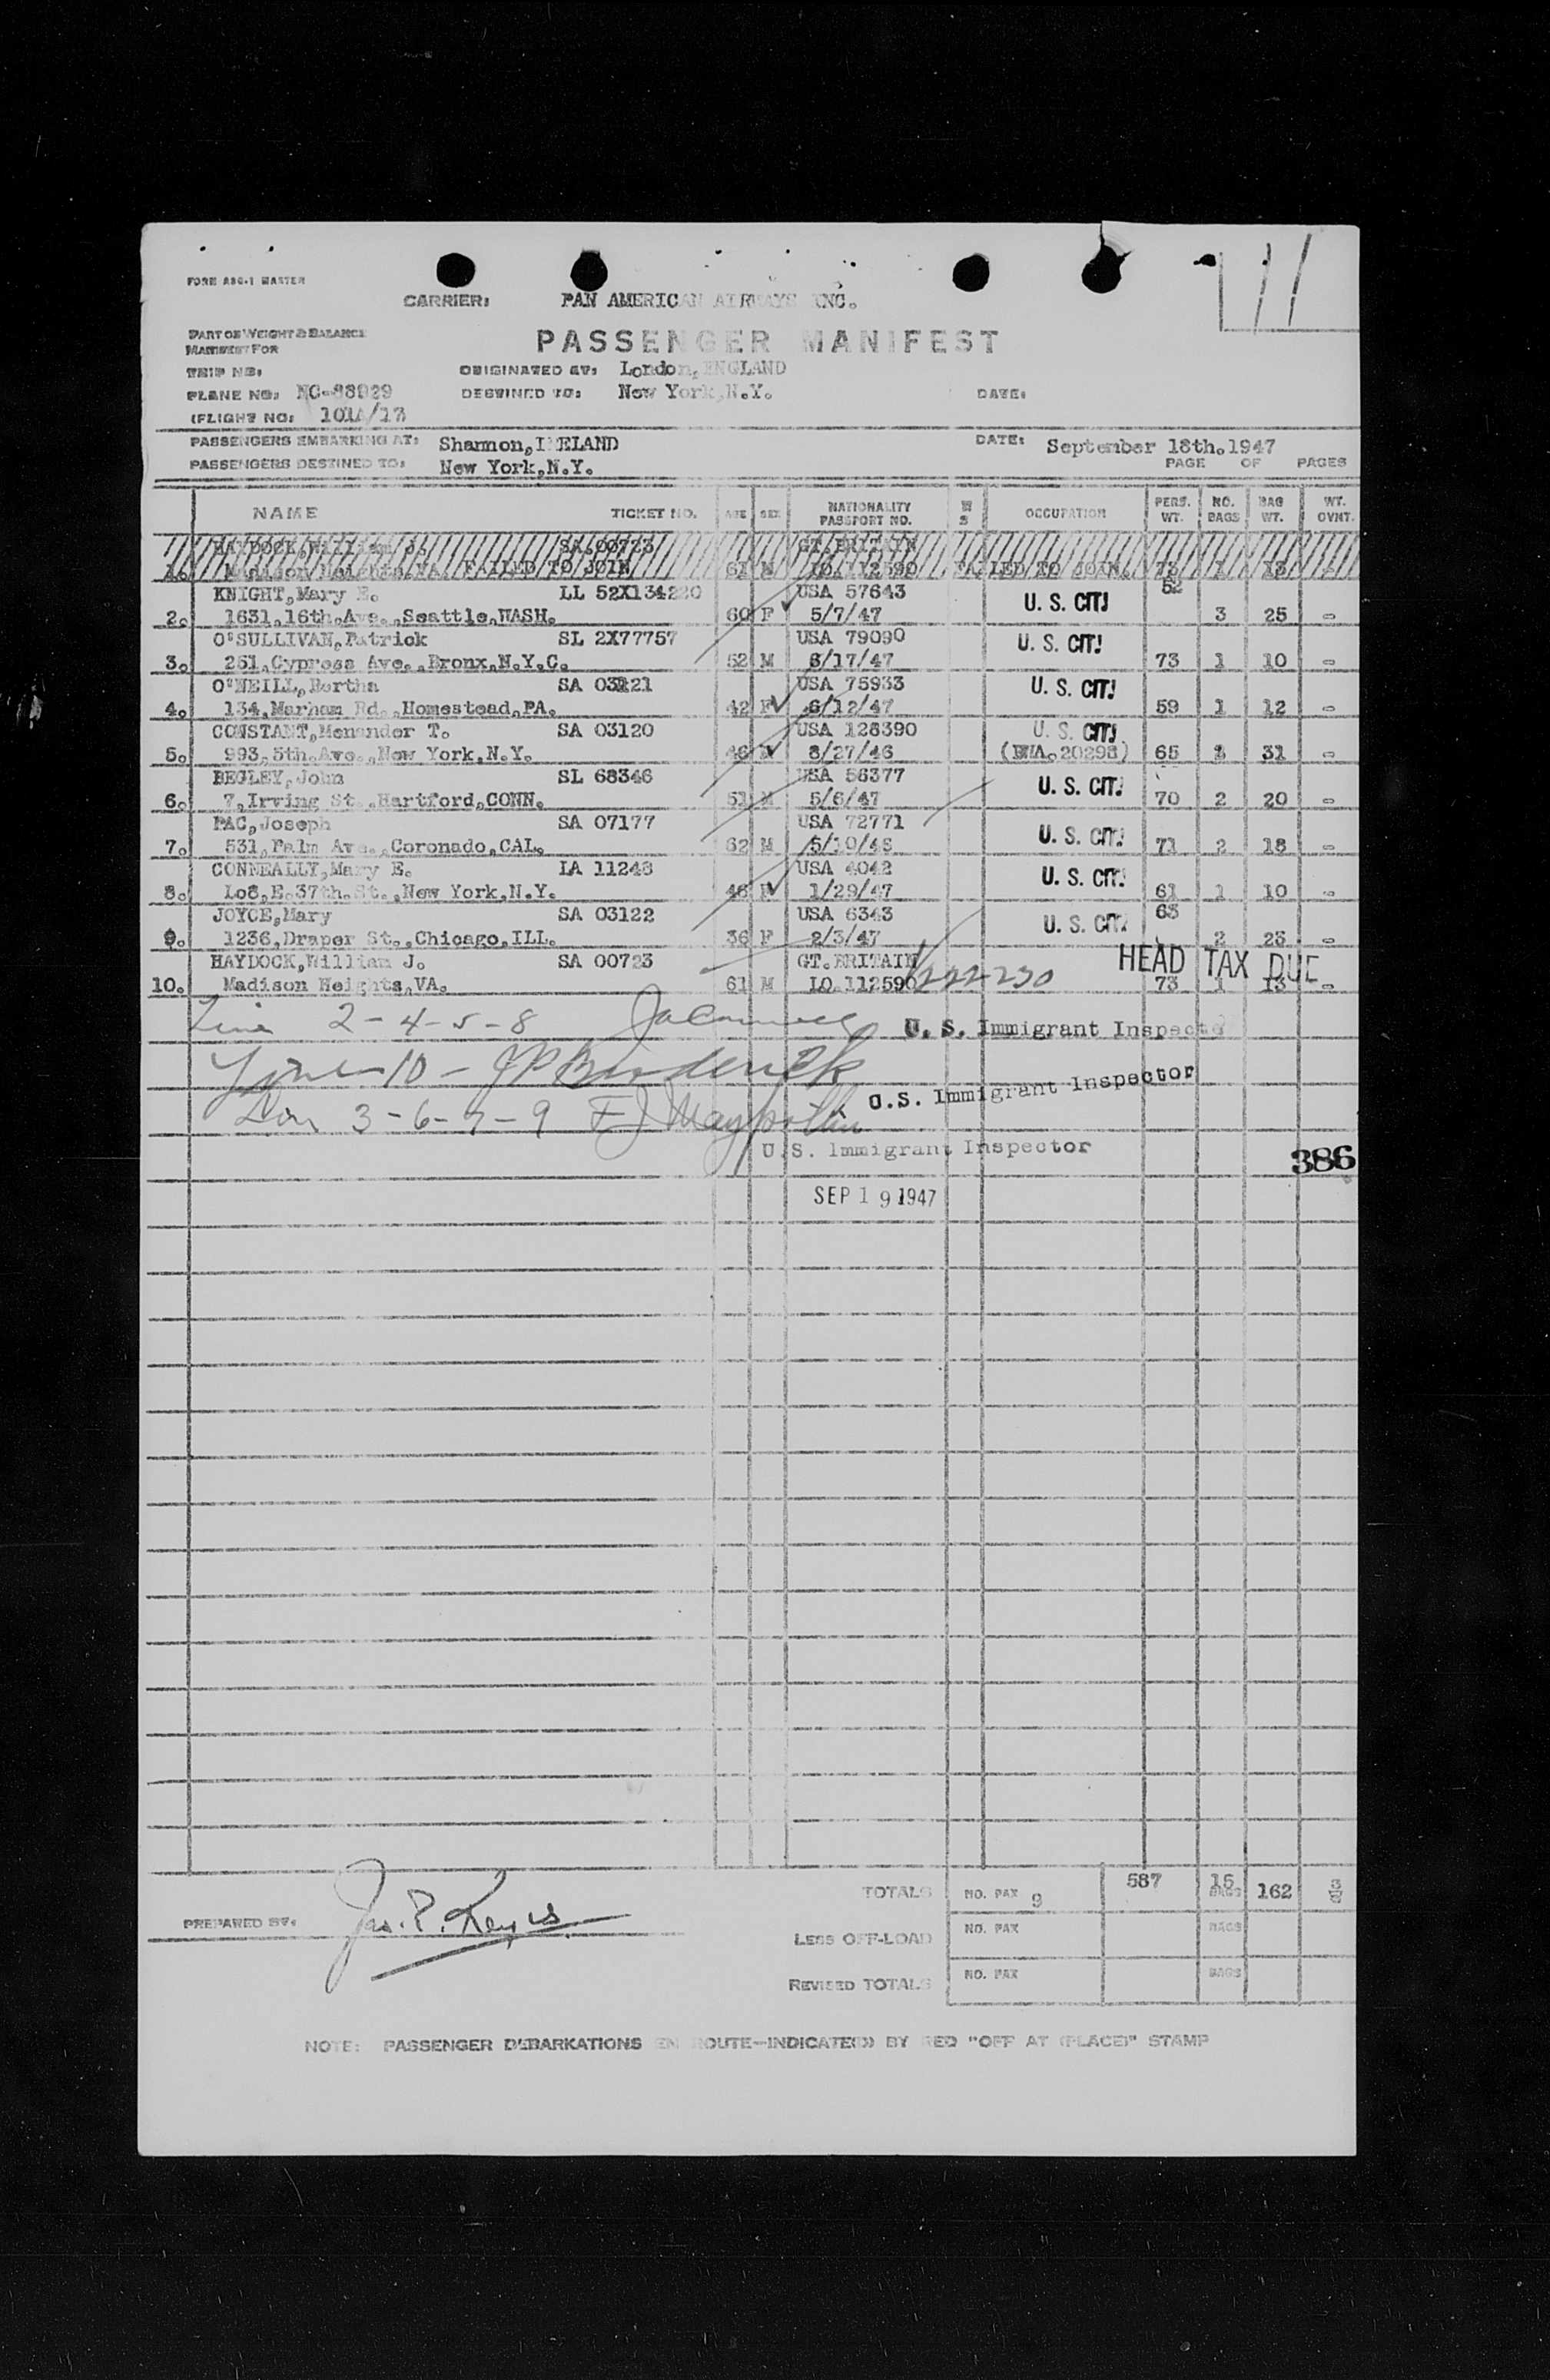 11
FORM ABC-1 MASTER
CARRIER: PAN AMERICAN AIRWAYS INC.
PART OF WEIGHT & BALANCE
MANIFEST FOR
PASSENGER MANIFEST
TRIP NO: ORIGINATED AT: London, ENGLAND
PLANE NO: NC-88929 DESTINED TO: New York, N.Y. DATE:
(FLIGHT NO: 101A/13
PASSENGERS EMBARKING AT: Shannon, IRELAND DATE: September 18th. 1947
PASSENGERS DESTINED TO: New York, N.Y. PAGE OF PAGES
NAME TICKET NO. AGE SEX NATIONALITY PASSPORT NO. OCCUPATION PERS. WT. NO. BAGS BAG WT. WT. OVNT.
HAYDOCK, William J. SA 00723 GT. BRITAIN
1. Madison Heights, VA. FAILED TO JOIN 61 M LO. 112590 FAILED TO JOIN. 73 1 13
KNIGHT, Mary E. LL 52X134220 USA 57643 U. S. CIT. 52
2. 1631, 16th. Ave., Seattle, WASH. 60 F 5/7/47 3 25 -
O'SULLIVAN, Patrick SL 2X77757 USA 79090 U. S. CIT.
3. 251, Cypress Ave., Bronx, N.Y.C. 52 M 6/17/47 73 1 10 -
O'NEILL, Bertha SA 03121 USA 75933 U. S. CIT.
4. 134, Marham Rd., Homestead, PA. 42 F 6/12/47 59 1 12 -
CONSTANT, Menander T. SA 03120 USA 128390 U. S. CIT.
5. 993, 5th. Ave., New York, N.Y. 46 M 8/27/46 20298) 65 31 -
BEGLEY, John SL 68346 USA 56377 U. S. CIT.
6. 7, Irving St., Hartford, CONN. 51 M 5/6/47 70 2 20 -
PAC, Joseph SA 07177 USA 72771 U. S. CIT.
7. 531, Palm Ave., Coronado, CAL. 62 M 5/10/46 71 2 18 -
CONNEALLY, Mary E. LA 11248 USA 4042 U. S. CIT.
8. Lo8, E. 37th. St., New York, N.Y. 46 F 1/29/47 61 1 10 -
JOYCE, Mary SA 03122 USA 6343 U. S. CIT. 63
9. 1236, Draper St., Chicago, ILL. 36 F 2/3/47 2 23 -
HAYDOCK, William J. SA 00723 GT. BRITAIN HEAD TAX DUE
10. Madison Heights, VA. 61 M LO. 112590 73 1 13 -
Line 2-4-5-8 U. S. Immigrant Inspector
Line 10 - JP Broderick
U.S. Immigrant Inspector
Line 3-6-7-9 FJ
U.S. Immigrant Inspector
386
SEP 19 1947
TOTALS NO. PAX 9 587 15 BAGS 162
PREPARED BY: Jas. P. Keyes
LESS OFF-LOAD NO. PAX BAGS
REVISED TOTALS NO. PAX BAGS
NOTE: PASSENGER DEBARKATIONS EN ROUTE—INDICATE(D) BY RED "OFF AT (PLACE)" STAMP